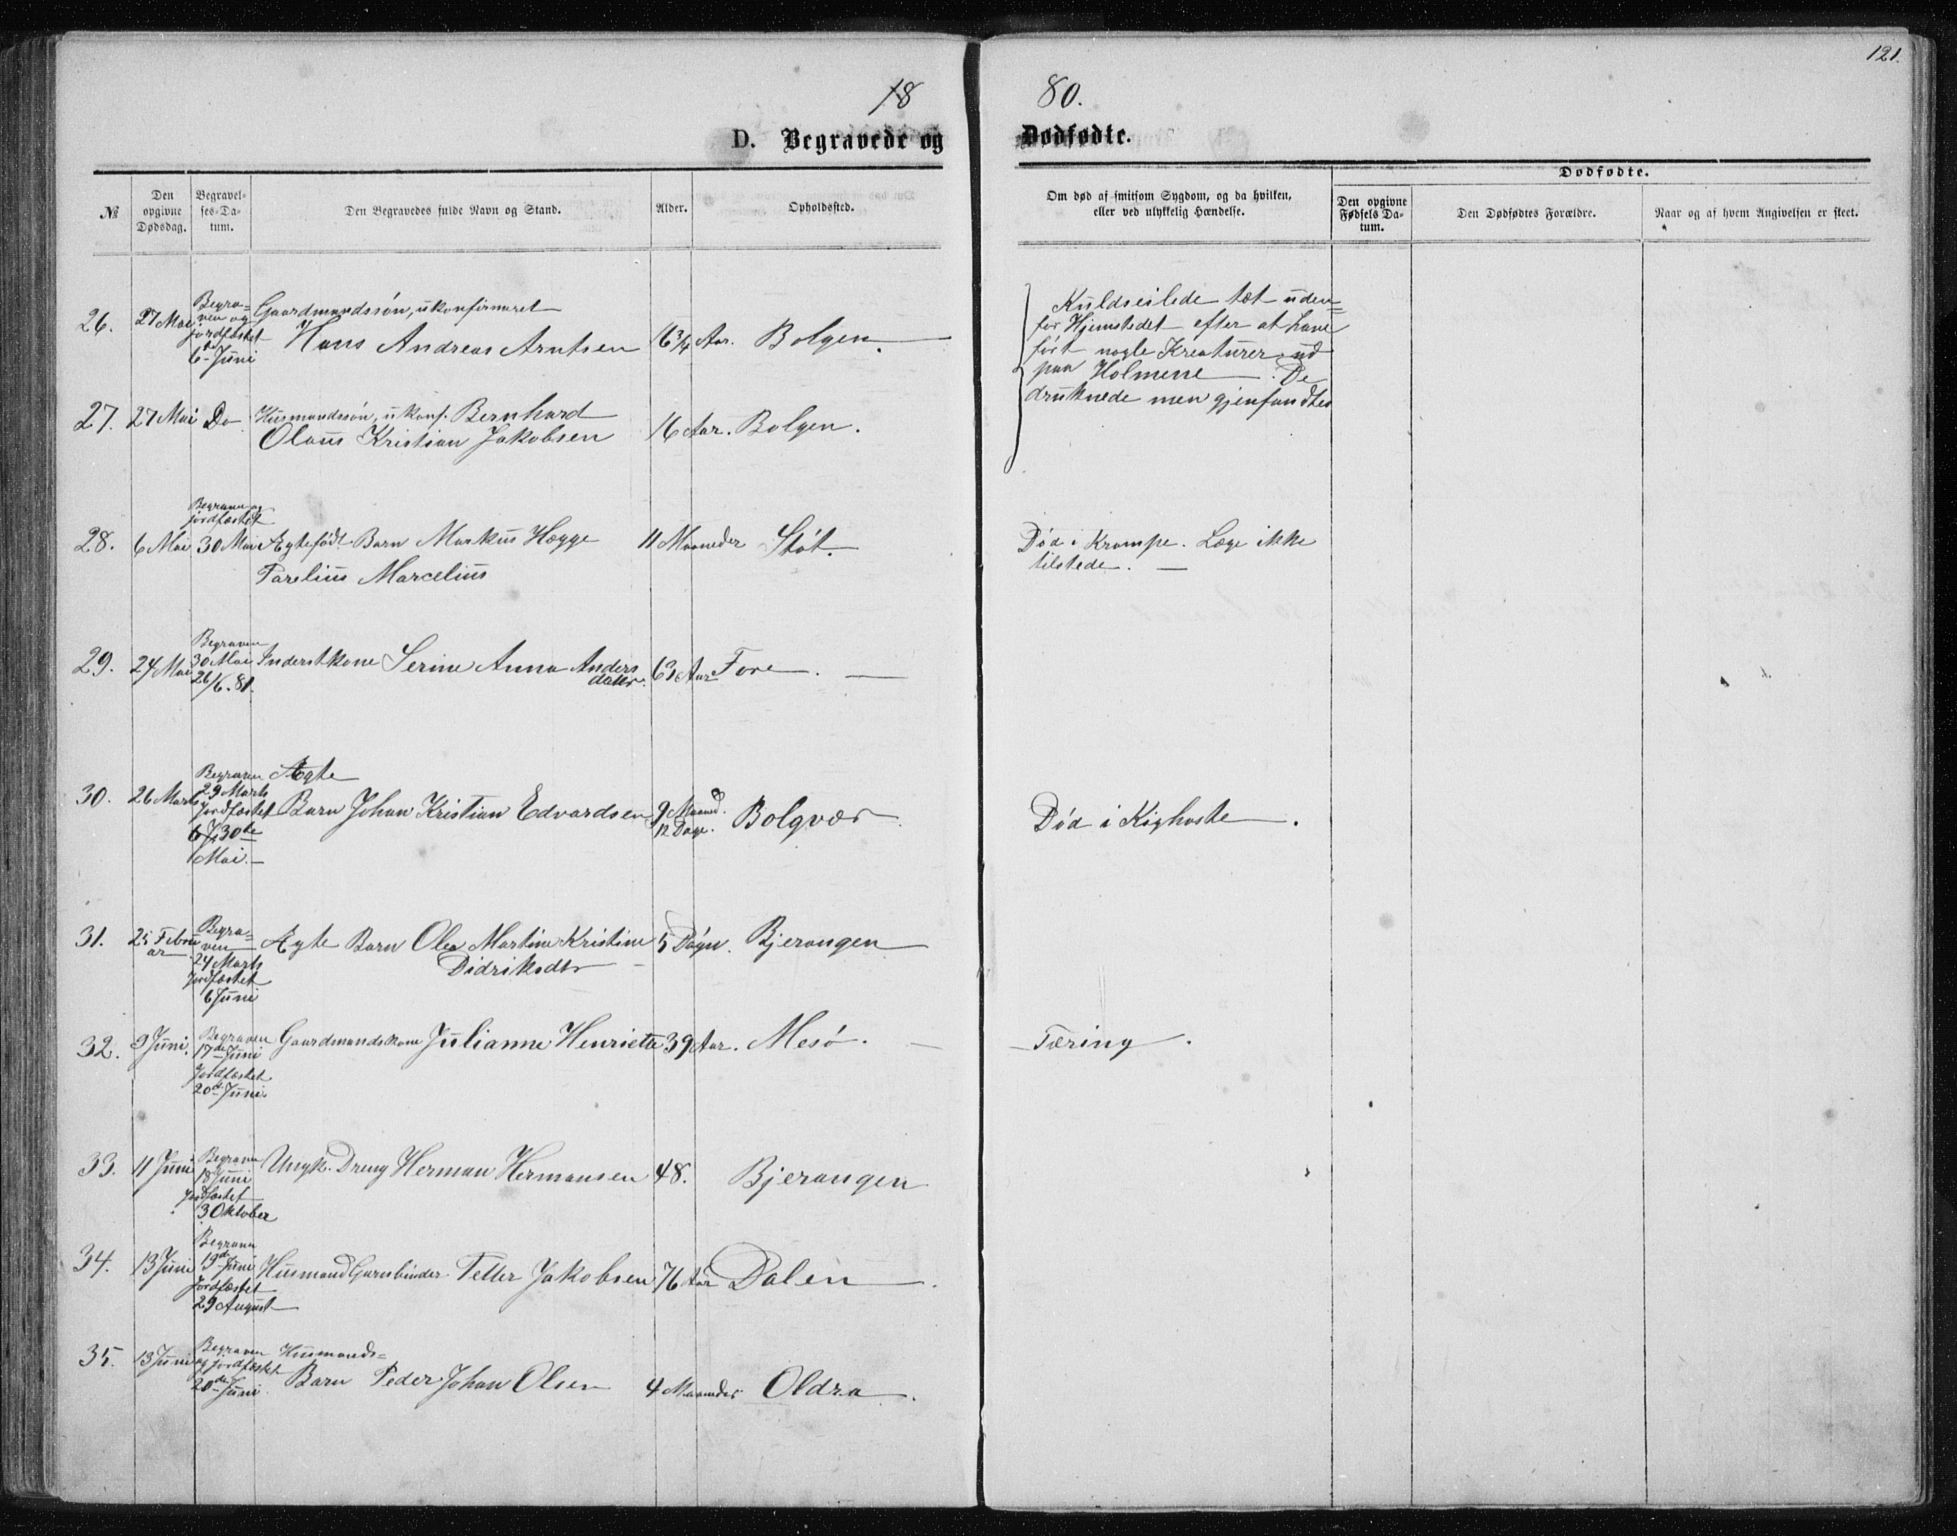 121.
18 80.
D. Begravede og Dødfødte.
№
Den opgivne Dødsdag.
Begravelses-Datum.
Den Begravedes fulde Navn og Stand.
Alder.
Opholdssted.
Om død af smitsom Sygdom, og da hvilken, eller ved ulykkelig Hændelse.
Dødfødte.
Den opgivne Fødsels Datum.
Den Dødfødtes Forældre.
Naar og af hvem Angivelsen er skeet.
26. 27 Mai
Begra=
ven og
jordfæstet
6te Juni
Gaardmandssøn, ukonfirmeret
Hans Andreas Arntsen 16 3/4 Aar. Bolgen.
Kuldseilede tæt uden=
for Hjemstedet efter at have
ført nogle Kreaturer ud
paa Holmene. De
druknede men gjenfandtes
27. 27 Mai Do Husmandssøn, ukonf. Bernhard
Olaus Kristian Jakobsen 16 Aar. Bolgen.
Begraven og
jordfæstet
28. 6 Mai 30 Mai Ægtefødt Barn Markus Hegge 11 Maaneder Støt.
Parelius Marcelius
Død i Krampe. Læge ikke
tilstede.
Begraven
29. 24 Mai 30 Mai Inderstkone Serine Anna Anders 63 Aar Fore.
26/6.81. datter.
Begraven Ægte
29 Marts
30. 26 Marts jordfæstet Barn Johan Kristian Edvardsen 9 Maaned. 12 Dage. Bolgvær
30te
Mai.
Død i Kighoste.
31. 25 Februar
Begra=
ven
24 Marts
Jordfæstet
6 Juni
Ægte Barn Olea Martine Kristine 5 Døgn. Bjerangen
Didriksdtr
32. 9 Juni.
Begraven
17de Juni
Jordfæstet
20de Juni
Gaardmandskone Julianne Henriette 39 Aar. Mesø.
Tæring.
33. 11 Juni
Begraven
18 Juni
Jordfæstet
3 Oktober
Ungk. Dreng Herman Hermansen 48. Bjerangen
34. 13 Juni
Begraven
19de Juni
Jordfæstet
29 August
Husmand Garnbinder Petter Jakobsen 76 Aar Dalen.
35. 13 Juni
Begraven
og jordfæstet
20de Juni
Husmands=
Barn Peder Johan Olsen 4 Maaneder Oldra.